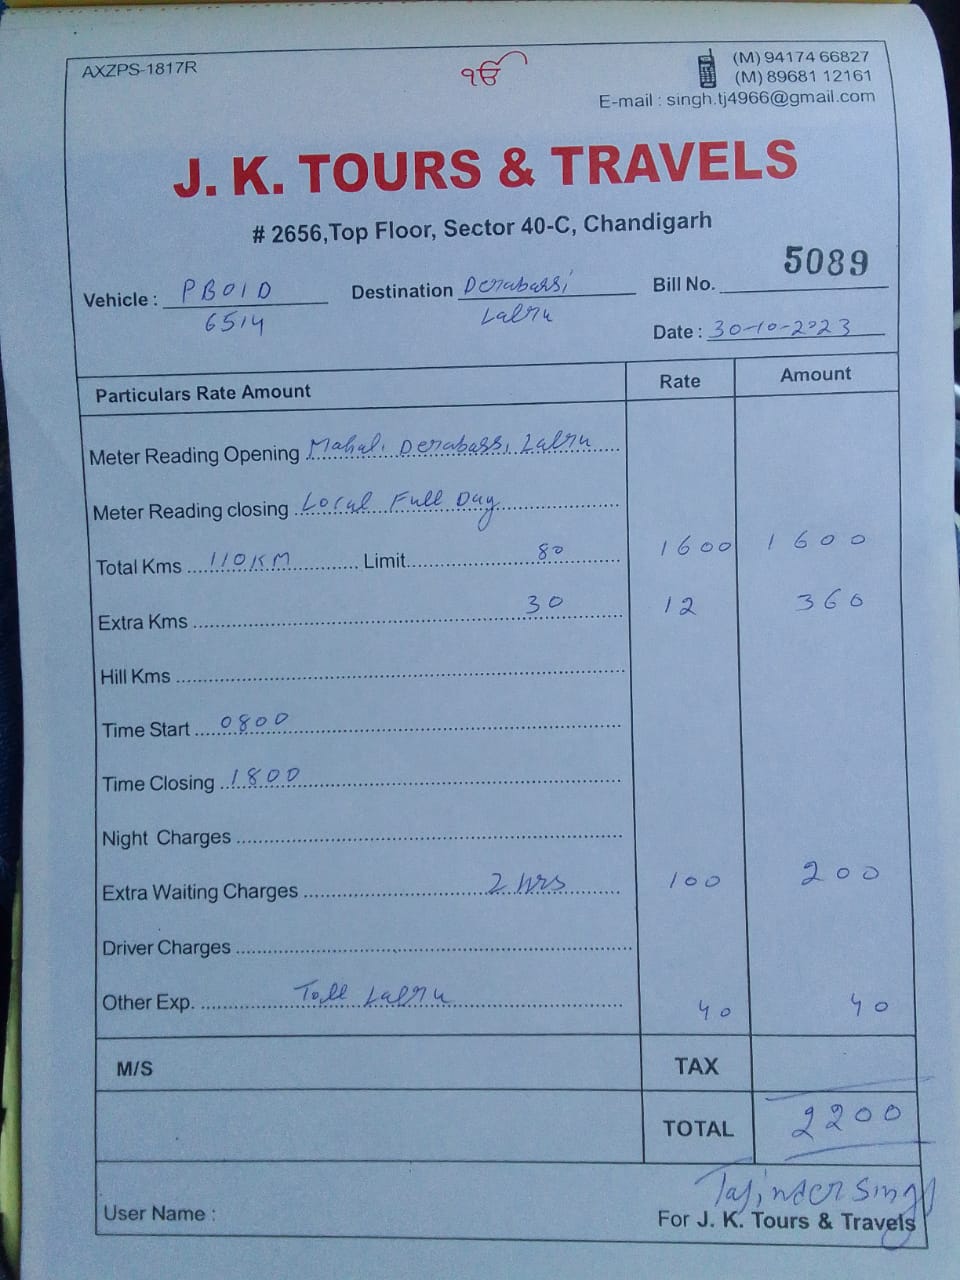 AXZPS-1817R
ੴ
(M) 94174 66827
(M) 89681 12161
E-mail : singh.tj4966@gmail.com
J. K. TOURS & TRAVELS
# 2656,Top Floor, Sector 40-C, Chandigarh
Vehicle : PB01D Destination Derabassi Bill No. 5089
6514 Lalru
Date : 30-10-2023
Particulars Rate Amount Rate Amount
Meter Reading Opening Mahal. Derabassi, Lalru
Meter Reading closing Local Full Day
Total Kms 110KM Limit 80 1600 1600
Extra Kms 30 12 360
Hill Kms
Time Start 0800
Time Closing 1800
Night Charges
Extra Waiting Charges 2 hrs 100 200
Driver Charges
Other Exp. Toll Lalru 40 40
M/S TAX
TOTAL 2200
Tajinder Singh
User Name : For J. K. Tours & Travels